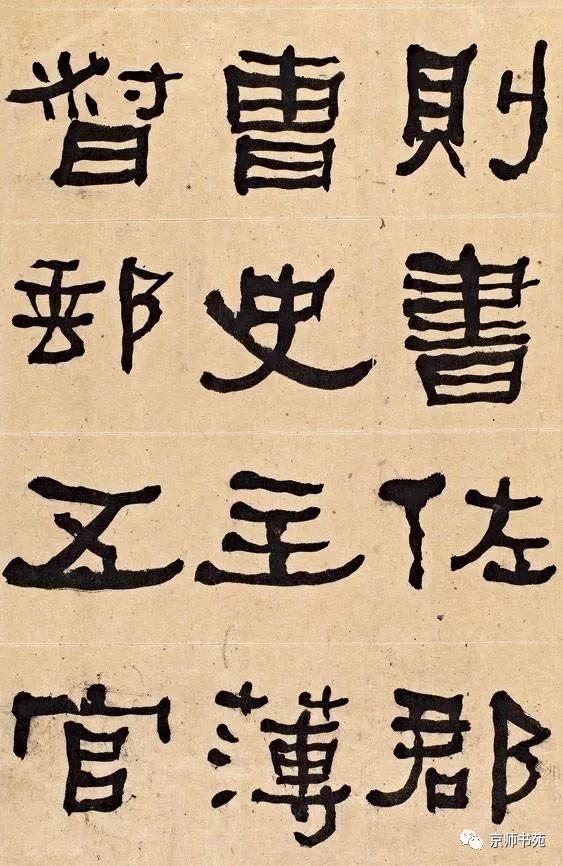 則書佐郡
曹史主薄
督郵五官
京师书苑